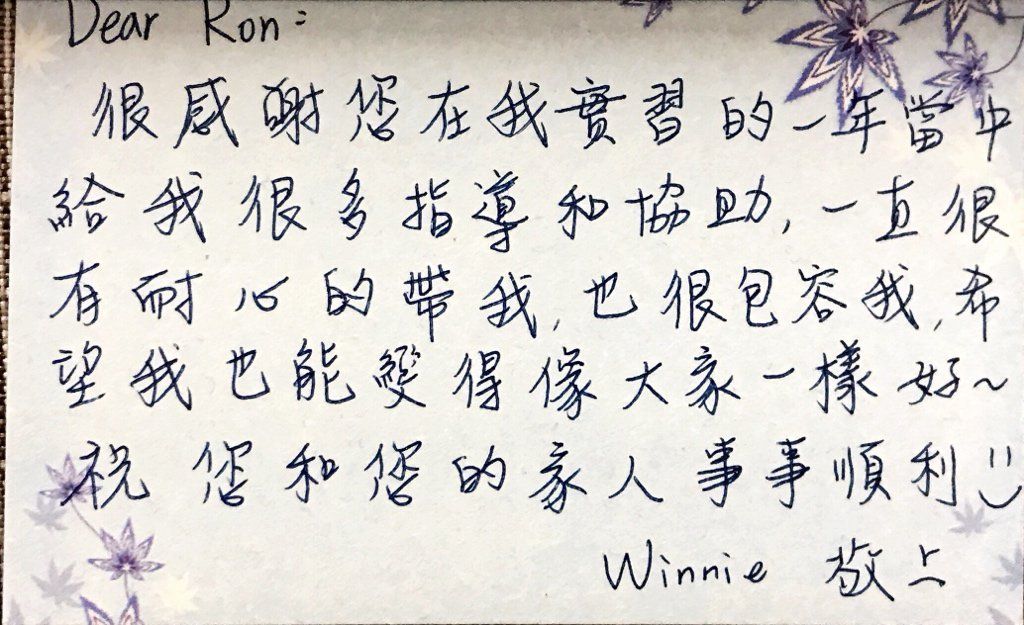 Dear Ron:
很感謝您在我實習的一年當中
給我很多指導和協助,一直很
有耐心的帶我,也很包容我,希
望我也能變得像大家一樣好~
祝 您和您的家人事事順利
Winnie 敬上